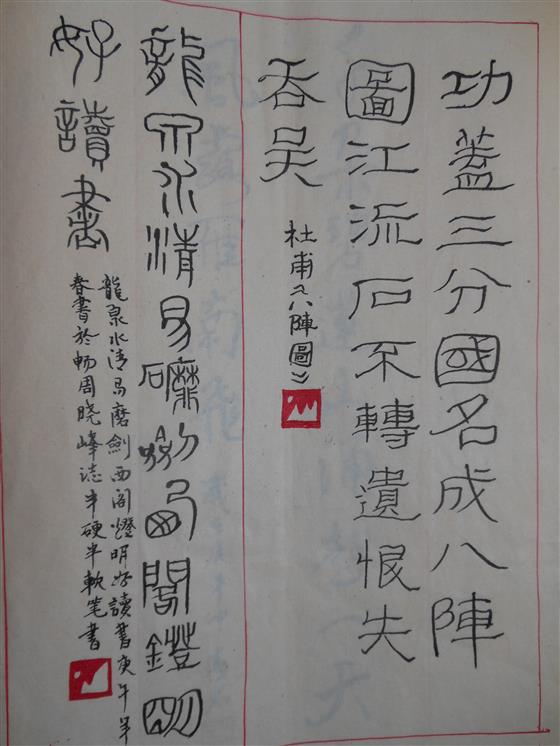 功蓋三分國名成八陣
圖江流石不轉遺恨失
吞吴
杜甫《八陣圖》
龍泉水清易磨劍西閣鐙明
好讀書
龍泉水清易磨劍西阁燈明好讀書庚午年
春書於畅周晓峰誌半硬半軟笔書